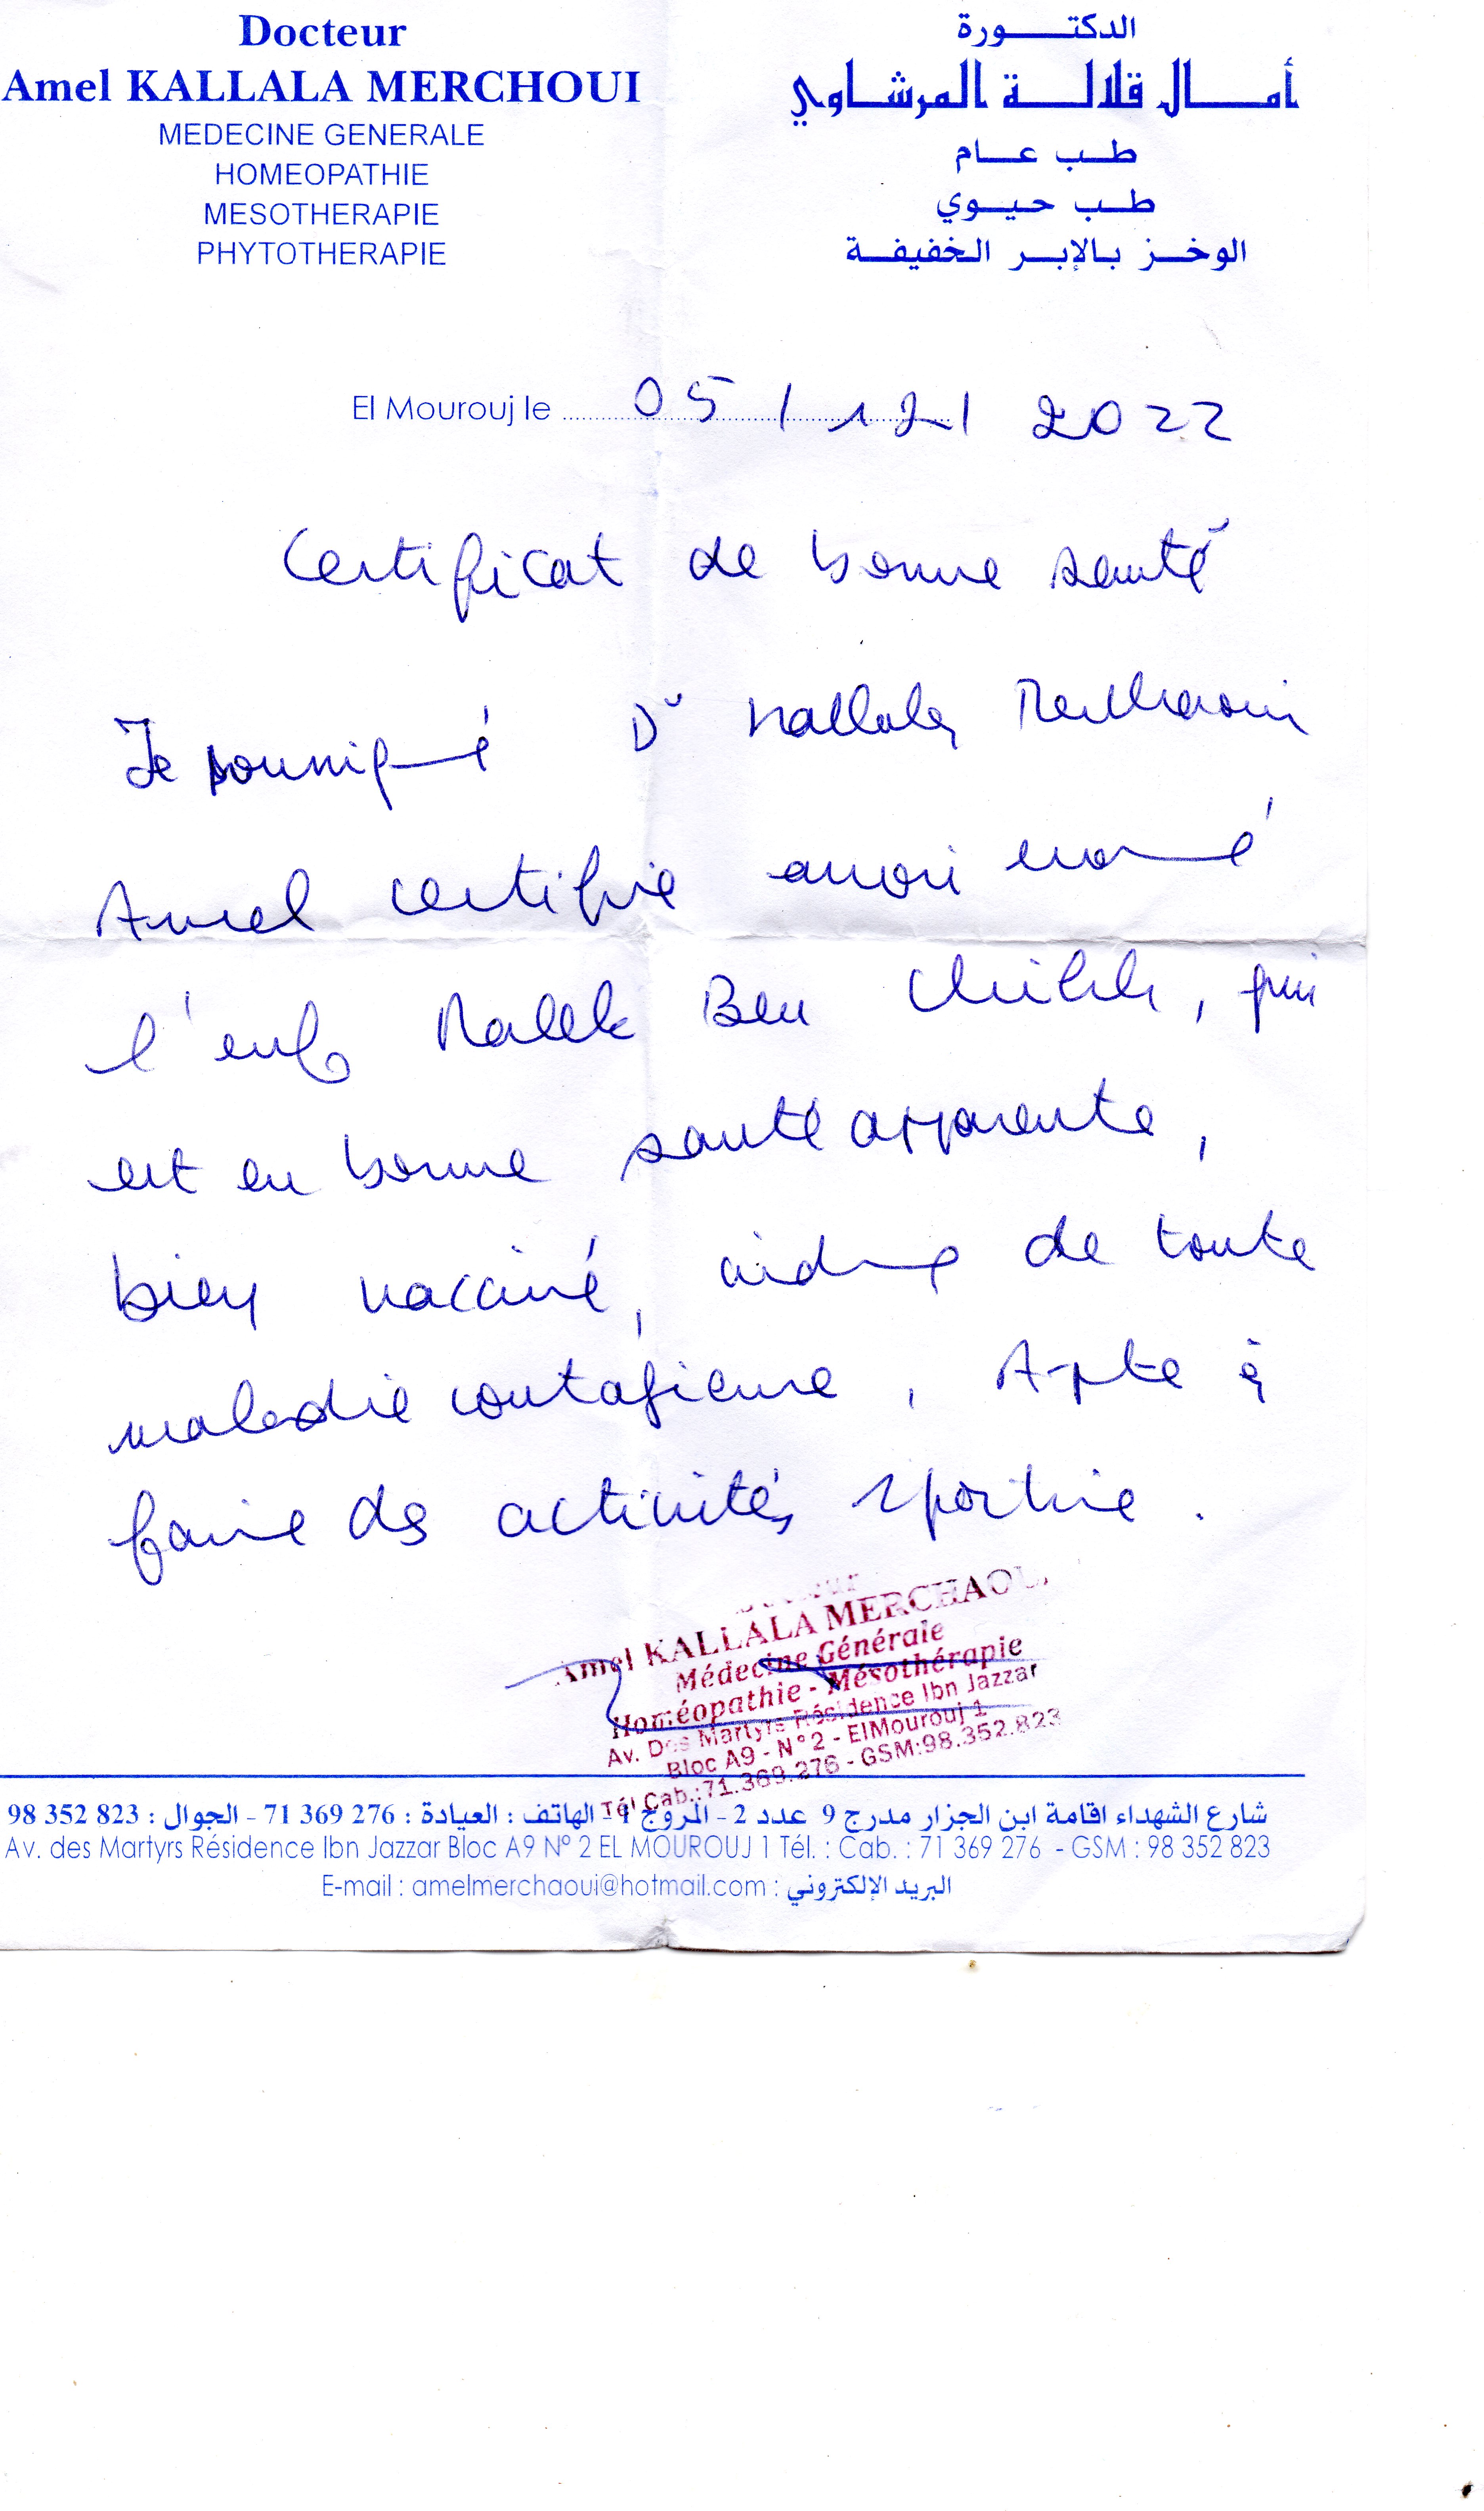 Docteur
Amel KALLALA MERCHOUI
MEDECINE GENERALE
HOMEOPATHIE
MESOTHERAPIE
PHYTOTHERAPIE
الدكتورة
أمال قلالة المرشاوي
طب عام
طب حيوي
الوخز بالإبر الخفيفة
El Mourouj le 05/12/2022
Certificat de bonne santé
Je soussigné Dr Kallala Merchaoui
Amel certifie avoir examiné
l'enf Malek Ben, qui
est en bonne santé apparente,
bien vacciné, de toute
maladie contagieuse, Apte à
faire des activités sportive.
Amel KALLALA MERCHAOUI
Médecine Générale
Homéopathie - Mésothérapie
Av. Des Martyrs Résidence Ibn Jazzar
Bloc A9 - N°2 - ElMourouj 1
Tél Cab.:71.369.276 - GSM:98.352.823
شارع الشهداء اقامة ابن الجزار مدرج 9 عدد 2 - المروج 1 - الهاتف : العيادة : 276 369 71 - الجوال : 823 352 98
Av. des Martyrs Résidence Ibn Jazzar Bloc A9 N° 2 EL MOUROUJ 1 Tél. : Cab. : 71 369 276 - GSM : 98 352 823
E-mail : amelmerchaoui@hotmail.com : البريد الإلكتروني